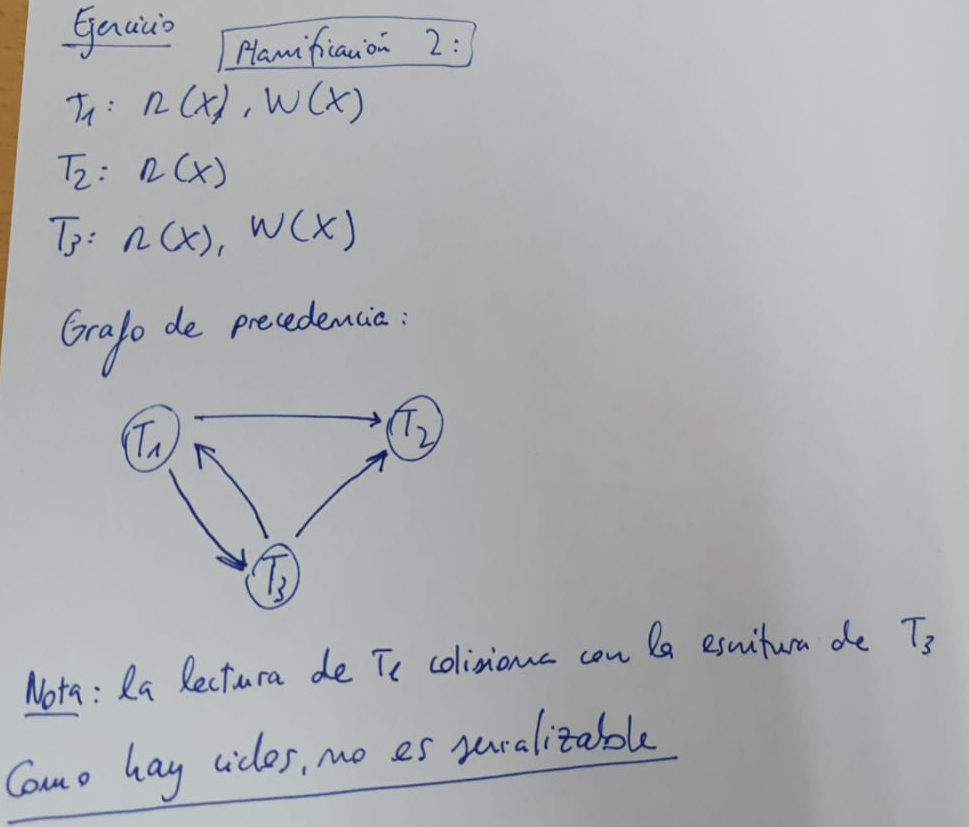 Ejercicio
Planificación 2:
T1: R(X), W(X)
T2: R(X)
T3: R(X), W(X)
Grafo de precedencia:
T1
T2
T3
Nota: la lectura de colisiona con la escritura de T3
Como hay ciclos, no es serializable